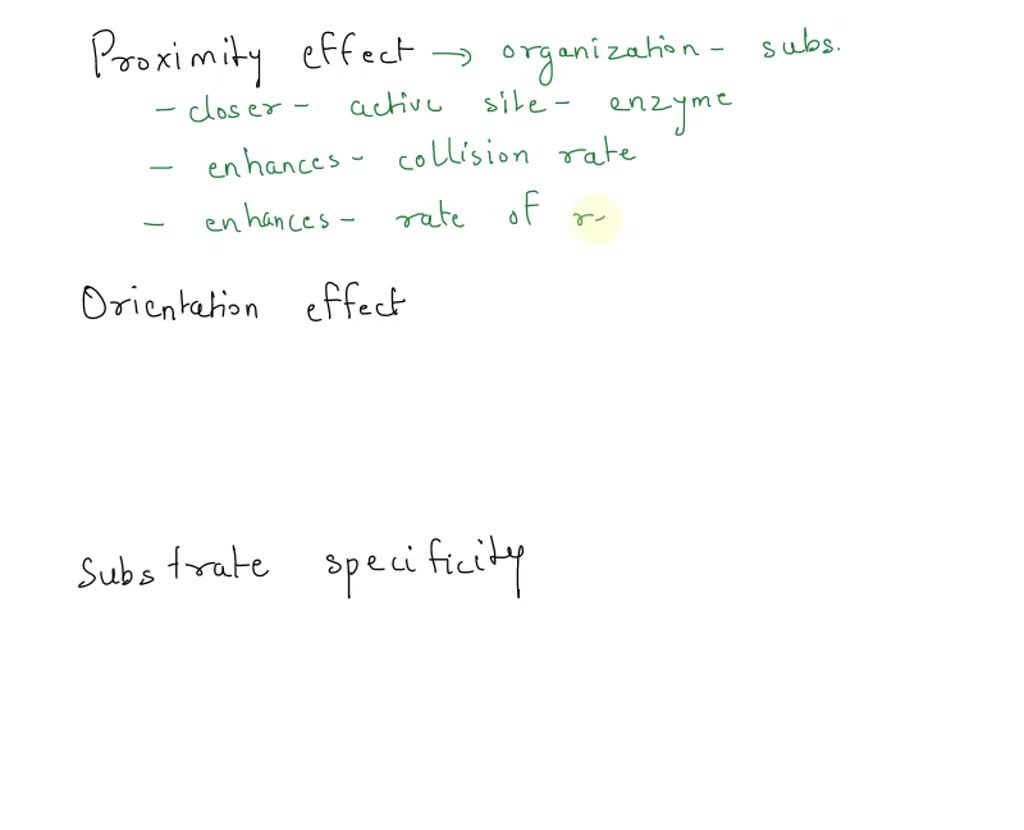 Proximity effect → organization - subs.
- closer - active site - enzyme
- enhances - collision rate
- enhances - rate of r
Orientation effect
Substrate specificity